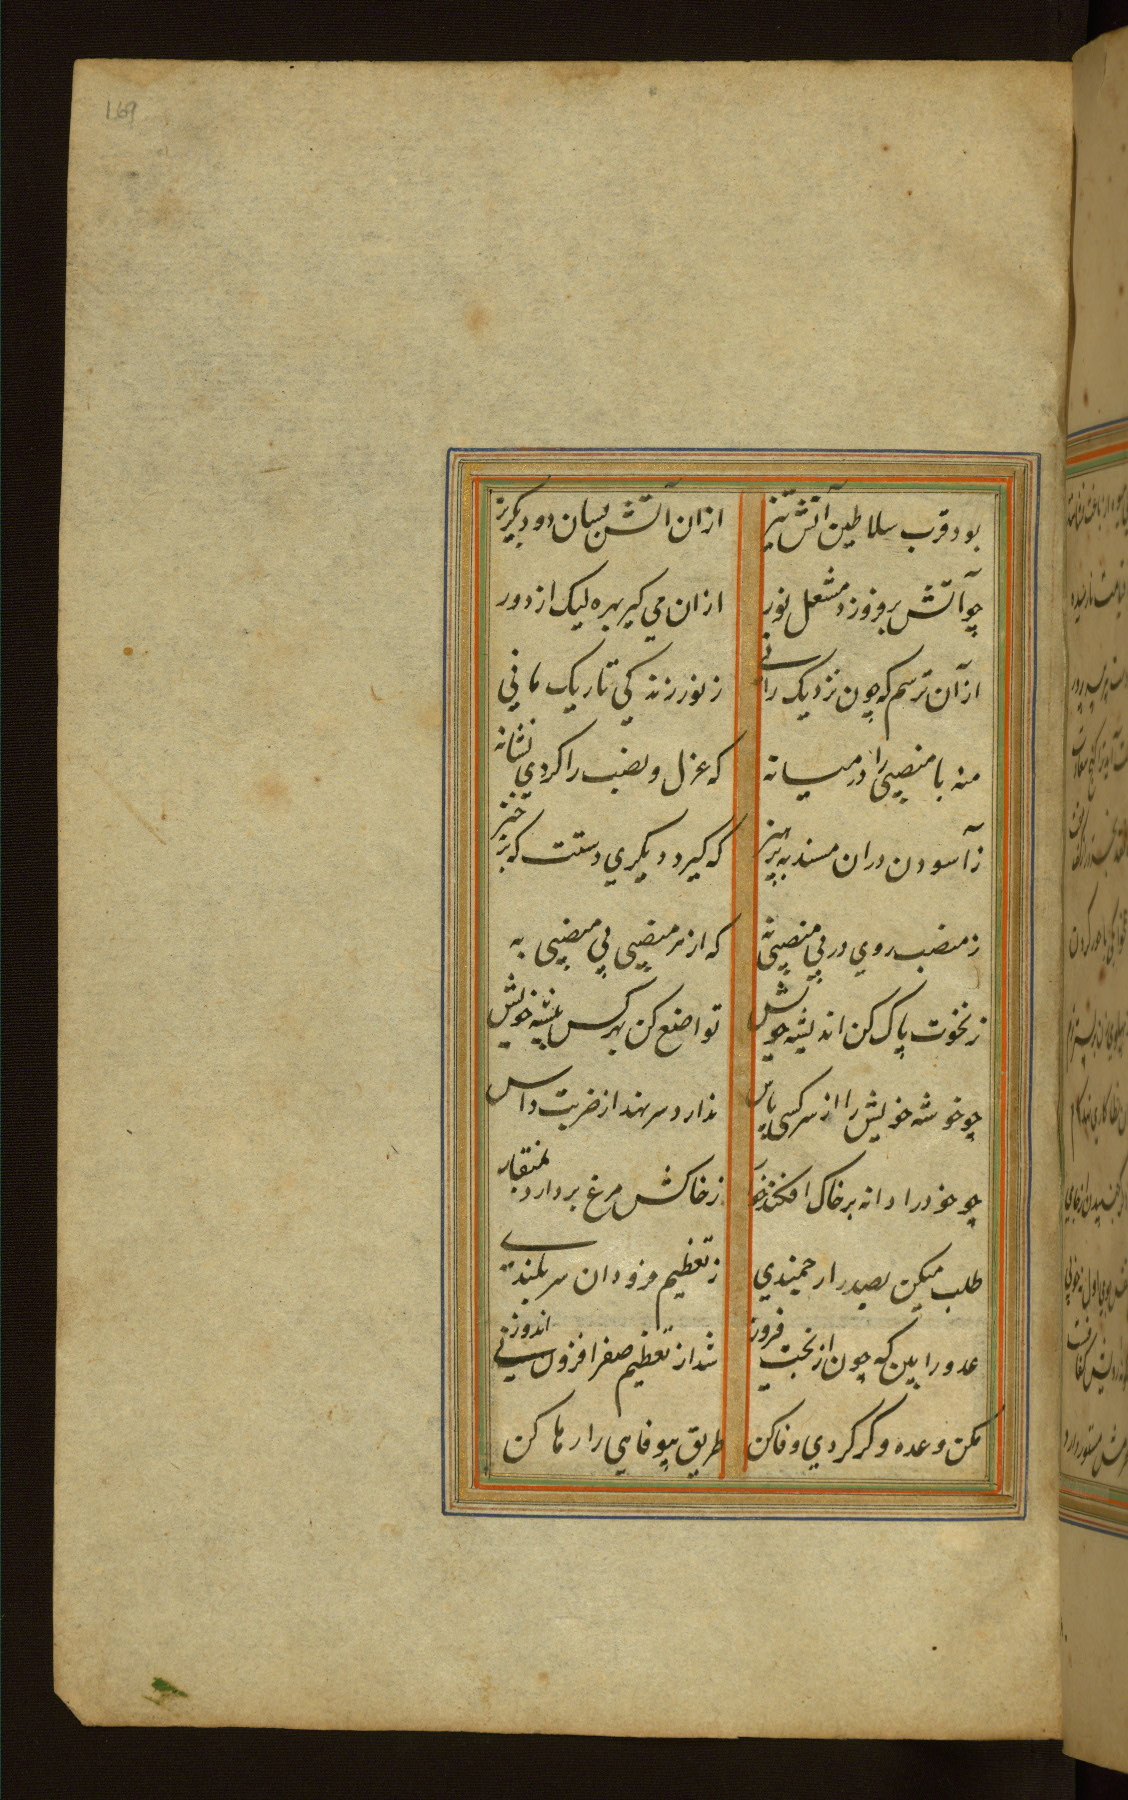 169
بود قرب سلاطین آتش تیز ازان آتش بسان دود بگریز
چو آتش بر فروزد مشعل نور ازان می گیر بهره لیک از دور
از آن ترسم که چون نزدیک رانی ز نور زندگی تاریک مانی
منه پا منصبی را در میانه که عزل و نصب را کردی نشانه
ز آسودن دران مسند بپرهیز که گیرد دیگری دستت که برخیز
ز منصب روی در بی منصبی نه که از هر منصبی بی منصبی به
ز نخوت پاک کن اندیشه خویش تواضع کن بهر کس پیشه خویش
چو خوشه خویش را از سرکشی پاس ندارد سر نهد از ضربت داس
چو خود را دانه بر خاک افکند خوار ز خاکش مرغ بردارد بمنقار
طلب میکن بصدر ارجمندی ز تعظیم فرودان سربلندی
عدو را بین که چون از بخت فروز شد از تعظیم صفر افزونی اندوز
مکن وعده وگر کردی وفا کن طریق بیوفایی را رها کن